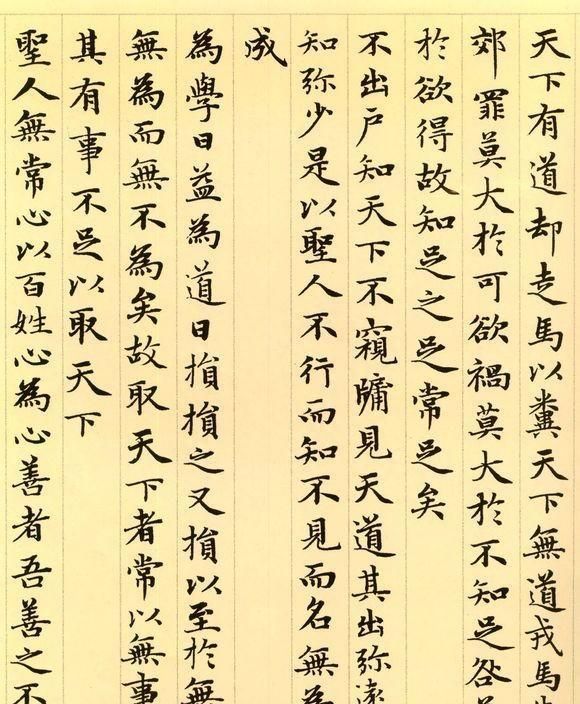 天下有道却走馬以糞天下無道戎馬
郊罪莫大於可欲禍莫大於不知足咎
於欲得故知足之足常足矣
不出户知天下不窺牖見天道其出弥遠
知弥少是以聖人不行而知不見而名無為
成
為學日益為道日損損之又損以至於無
無為而無不為矣故取天下者常以無事
其有事不足以取天下
聖人無常心以百姓心為心善者吾善之不